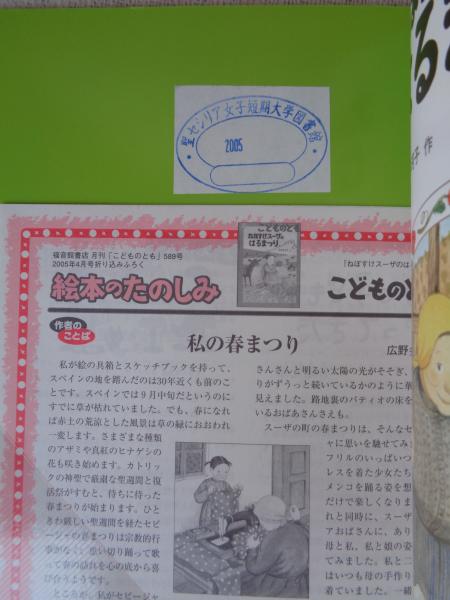 聖セシリア女子短期大学図書館
2005
作
福音館書店 月刊「こどものとも」589号
2005年4月号折り込みふろく
こどものとも
ねぼすけスーザの
はるまつり
「ねぼすけスーザのは
絵本のたのしみ
こどものと
作者の
ことば
私の春まつり
広野
私が絵の具箱とスケッチブックを持って、
スペインの地を踏んだのは30年近くも前のこ
とです。スペインでは9月中旬だというのに
すでに草が枯れていました。でも、春になれ
ば赤土の荒涼とした風景は草の緑におおわれ
一変します。さまざまな種類
のアザミや真紅のヒナゲシの
花も咲き始めます。カトリッ
クの神聖で厳粛な聖週間と復
活祭がすむと、待ちに待った
春まつりが始まります。ひと
きわ厳しい聖週間を経たセビ
ージャの春まつりは宗教的行
事がなく、思い切り踊って歌
って春の訪れを心の底から喜
び合うようです。
ところが、私がセビージャ
さんさんと明るい太陽の光がそそぎ、
りがずうっと続いているかのように華
見えました。路地裏のパティオの床を
いるおばあさんさえも。
スーザの町の春まつりは、そんなセ
ャに思いを馳せてみま
フリルのいっぱいつ
レスを着た少女たち
メンコを踊る姿を想
だけで楽しくなりま
れと同時に、スーザ
アおばさんに、あり
母と私、私と娘の姿
てみました。私と二
はいつも母の手作り
着ていました。一緒